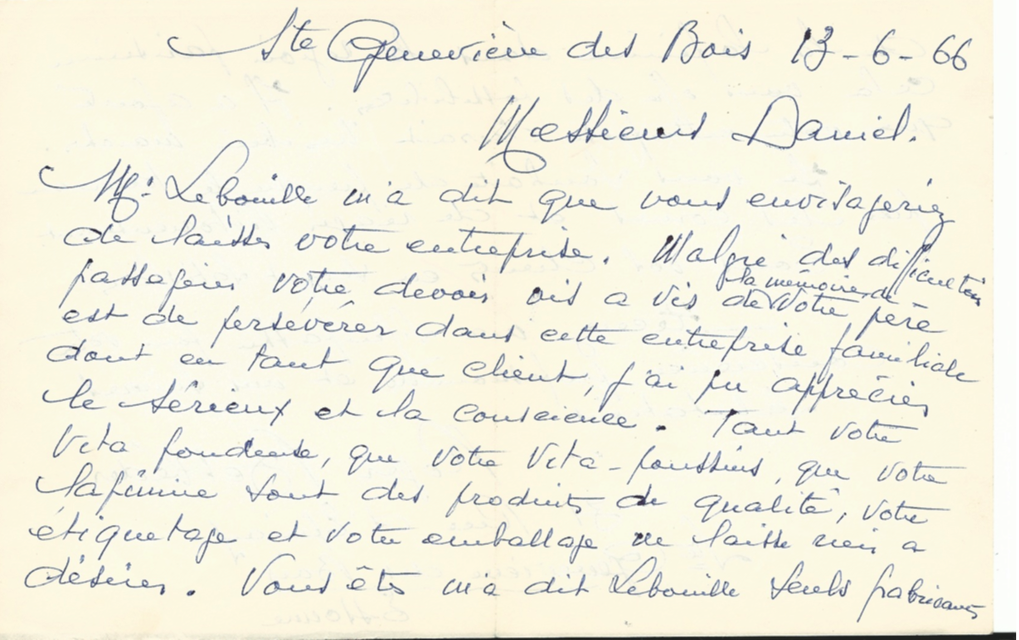 Ste Geneviève des Bois 13-6-66
Messieurs Daniel.
Mr. Lebouille m'a dit que vous envisageriez
de laisser votre entreprise. Malgré des difficultés
passagères votre devoir vis a vis de la mémoire de votre père
est de persévérer dans cette entreprise familiale
dont en tant que client, j'ai pu apprécier
le sérieux et la conscience. Tant votre
Vita pondeuse, que votre Vita-poussins, que votre
lapinine sont des produits de qualité, votre
étiquetage et votre emballage ne laisse rien a
désirer. Vous êtes m'a dit Lebouille seuls fabricants